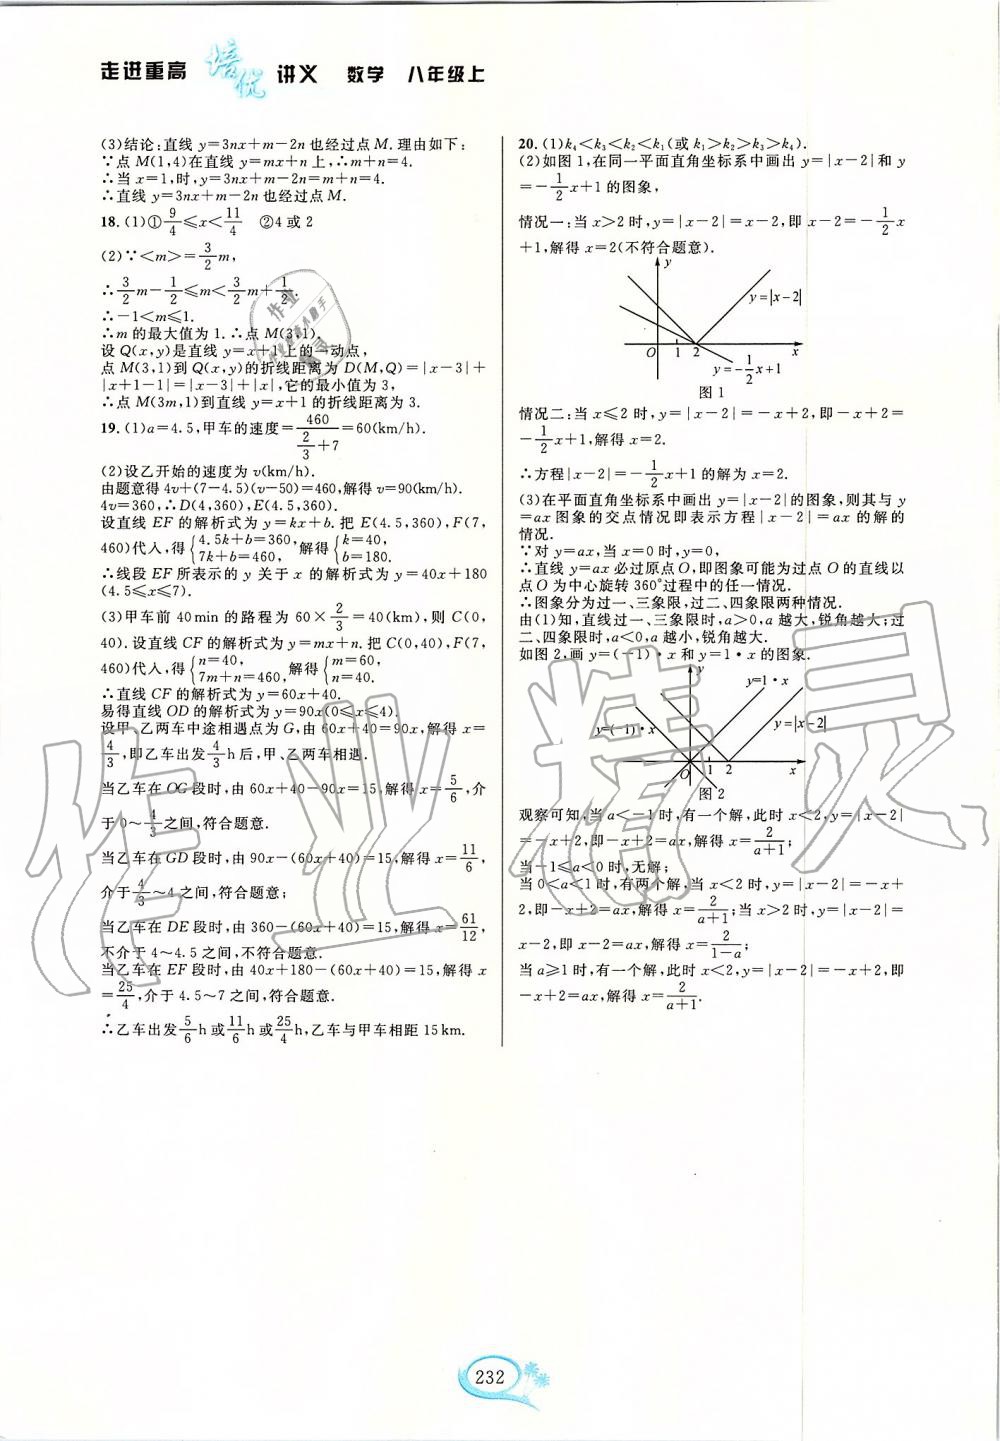 走进重高 培优 讲义 数学 八年级上
(3)结论:直线 y=3nx+m-2n 也经过点 M.理由如下:
∵点 M(1,4)在直线 y=mx+n 上,∴m+n=4.
∴当 x=1,时,y=3nx+m-2n=m+n=4.
∴直线 y=3nx+m-2n 也经过点 M.
18.(1)①9/4≤x<11/4 ②4 或 2
(2)∵<m>=3/2m,
∴3/2m-1/2≤m<3/2m+1/2.
∴-1<m≤1.
∴m 的最大值为 1.∴点 M(3,1).
设 Q(x,y)是直线 y=x+1 上的一动点,
点 M(3,1)到 Q(x,y)的折线距离为 D(M,Q)=|x-3|+
|x+1-1|=|x-3|+|x|,它的最小值为 3,
∴点 M(3m,1)到直线 y=x+1 的折线距离为 3.
19.(1)a=4.5,甲车的速度=460/(2/3+7)=60(km/h).
(2)设乙开始的速度为 v(km/h).
由题意得 4v+(7-4.5)(v-50)=460,解得 v=90(km/h).
4v=360,∴D(4,360),E(4.5,360).
设直线 EF 的解析式为 y=kx+b.把 E(4.5,360),F(7,
460)代入,得{4.5k+b=360, 7k+b=460, 解得{k=40, b=180.
∴线段 EF 所表示的 y 关于 x 的解析式为 y=40x+180
(4.5≤x≤7).
(3)甲车前 40 min 的路程为 60×2/3=40(km),则 C(0,
40).设直线 CF 的解析式为 y=mx+n.把 C(0,40),F(7,
460)代入,得{n=40, 7m+n=460, 解得{m=60, n=40.
∴直线 CF 的解析式为 y=60x+40.
易得直线 OD 的解析式为 y=90x(0≤x≤4).
设甲、乙两车中途相遇点为 G,由 60x+40=90x,解得 x=
4/3,即乙车出发4/3h 后,甲、乙两车相遇.
当乙车在 OG 段时,由 60x+40-90x=15,解得 x=5/6,介
于 0~4/3之间,符合题意.
当乙车在 GD 段时,由 90x-(60x+40)=15,解得 x=11/6,
介于4/3~4 之间,符合题意;
当乙车在 DE 段时,由 360-(60x+40)=15,解得 x=61/12,
不介于 4~4.5 之间,不符合题意.
当乙车在 EF 段时,由 40x+180-(60x+40)=15,解得 x
=25/4,介于 4.5~7 之间,符合题意.
∴乙车出发5/6h 或11/6h 或25/4h,乙车与甲车相距 15 km.
20.(1)k₄<k₃<k₂<k₁(或 k₁>k₂>k₃>k₄).
(2)如图 1,在同一平面直角坐标系中画出 y=|x-2|和 y
=-1/2x+1 的图象,
情况一:当 x>2 时,y=|x-2|=x-2,即 x-2=-1/2x
+1,解得 x=2(不符合题意).
y
y=|x-2|
O 1 2 x
y=-1/2x+1
图 1
情况二:当 x≤2 时,y=|x-2|=-x+2,即-x+2=
-1/2x+1,解得 x=2.
∴方程|x-2|=-1/2x+1 的解为 x=2.
(3)在平面直角坐标系中画出 y=|x-2|的图象,则其与 y
=ax 图象的交点情况即表示方程|x-2|=ax 的解的
情况.
∵对 y=ax,当 x=0 时,y=0,
∴直线 y=ax 必过原点 O,即图象可能为过点 O 的直线以
点 O 为中心旋转 360°过程中的任一情况.
∴图象分为过一、三象限,过二、四象限两种情况.
由(1)知,直线过一、三象限时,a>0,a 越大,锐角越大;过
二、四象限时,a<0,a 越小,锐角越大.
如图 2,画 y=(-1)·x 和 y=1·x 的图象.
y
y=1·x
y=(-1)·x
y=|x-2|
O 1 2 x
图 2
观察可知,当 a<-1 时,有一个解,此时 x<2,y=|x-2|
=-x+2,即-x+2=ax,解得 x=2/(a+1);
当-1≤a<0 时,无解;
当 0<a<1 时,有两个解,当 x<2 时,y=|x-2|=-x+
2,即-x+2=ax,解得 x=2/(a+1);当 x>2 时,y=|x-2|=
x-2,即 x-2=ax,解得 x=2/(1-a);
当 a≥1 时,有一个解,此时 x<2,y=|x-2|=-x+2,即
-x+2=ax,解得 x=2/(a+1).
作业精灵
232